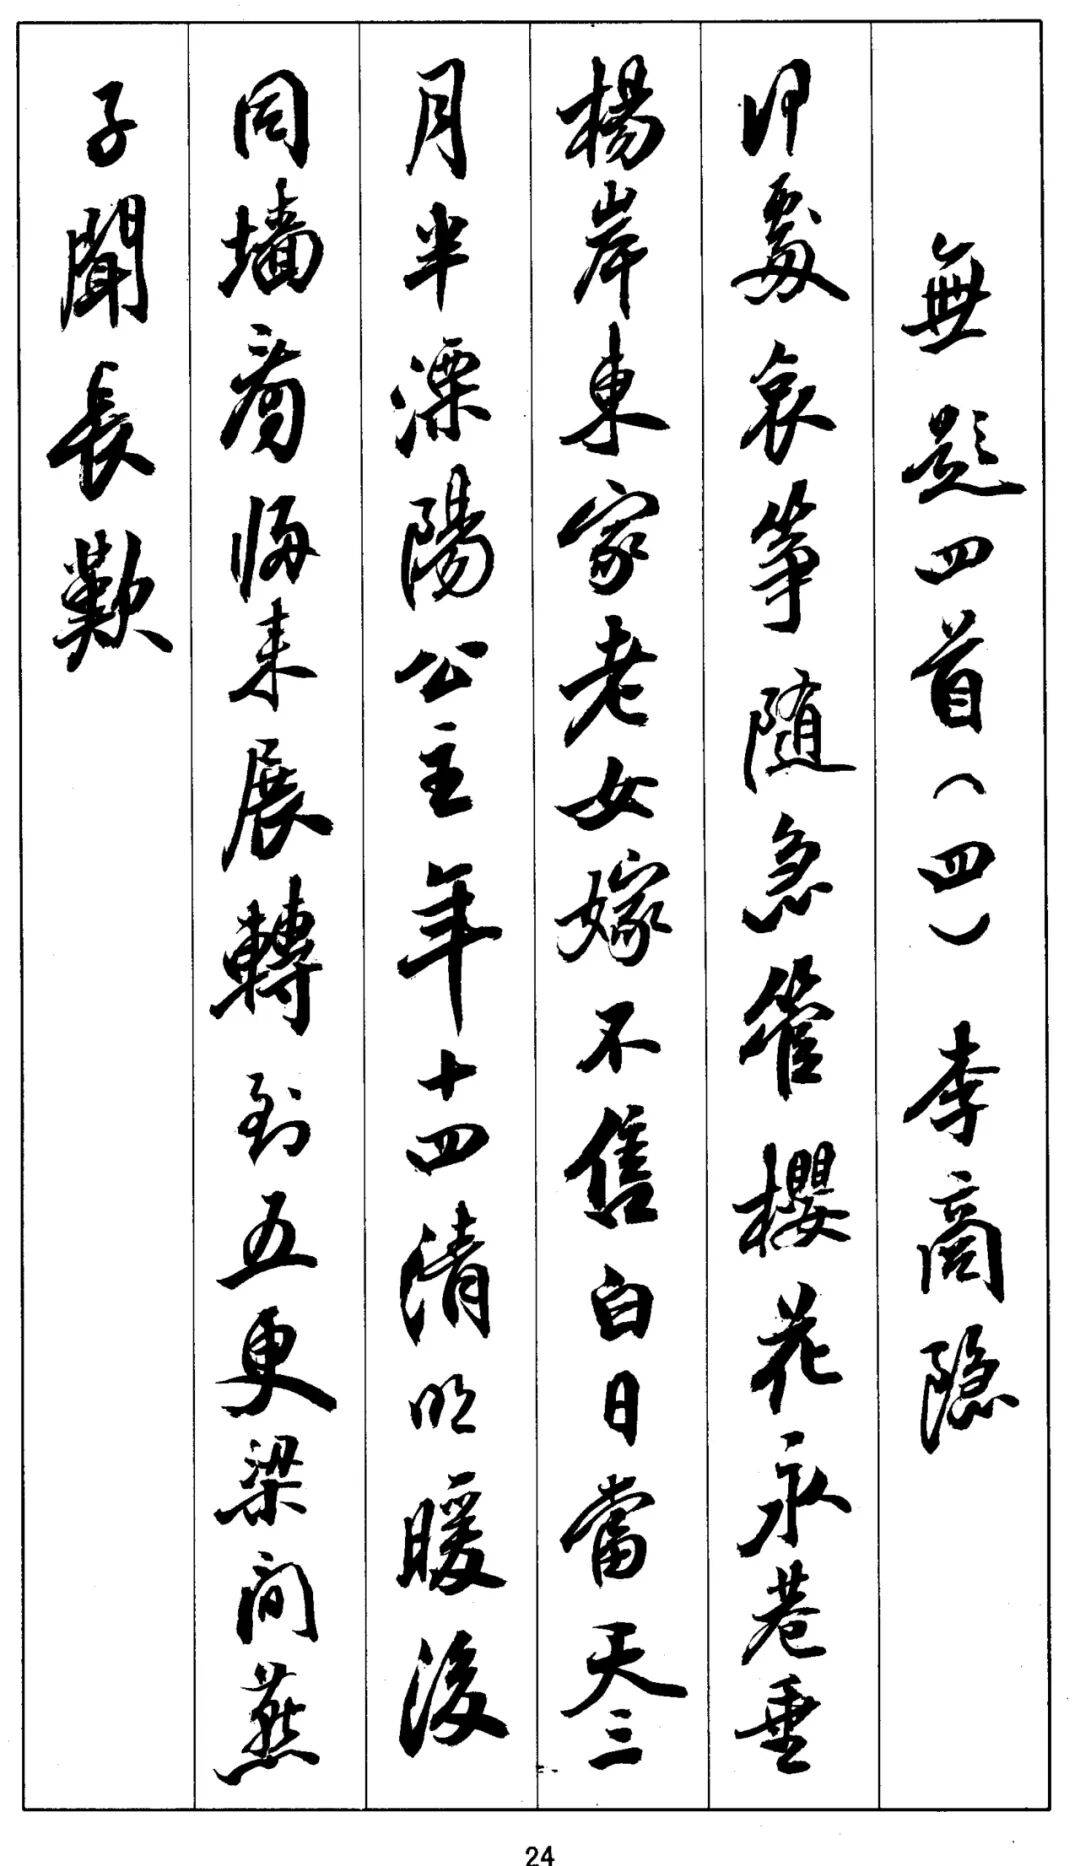 無題四首（四）李商隐
何處哀筝随急管櫻花永巷垂
楊岸東家老女嫁不售白日當天三
月半溧陽公主年十四清明暖後
同墙看歸来展轉到五更梁间燕
子聞長歎
24